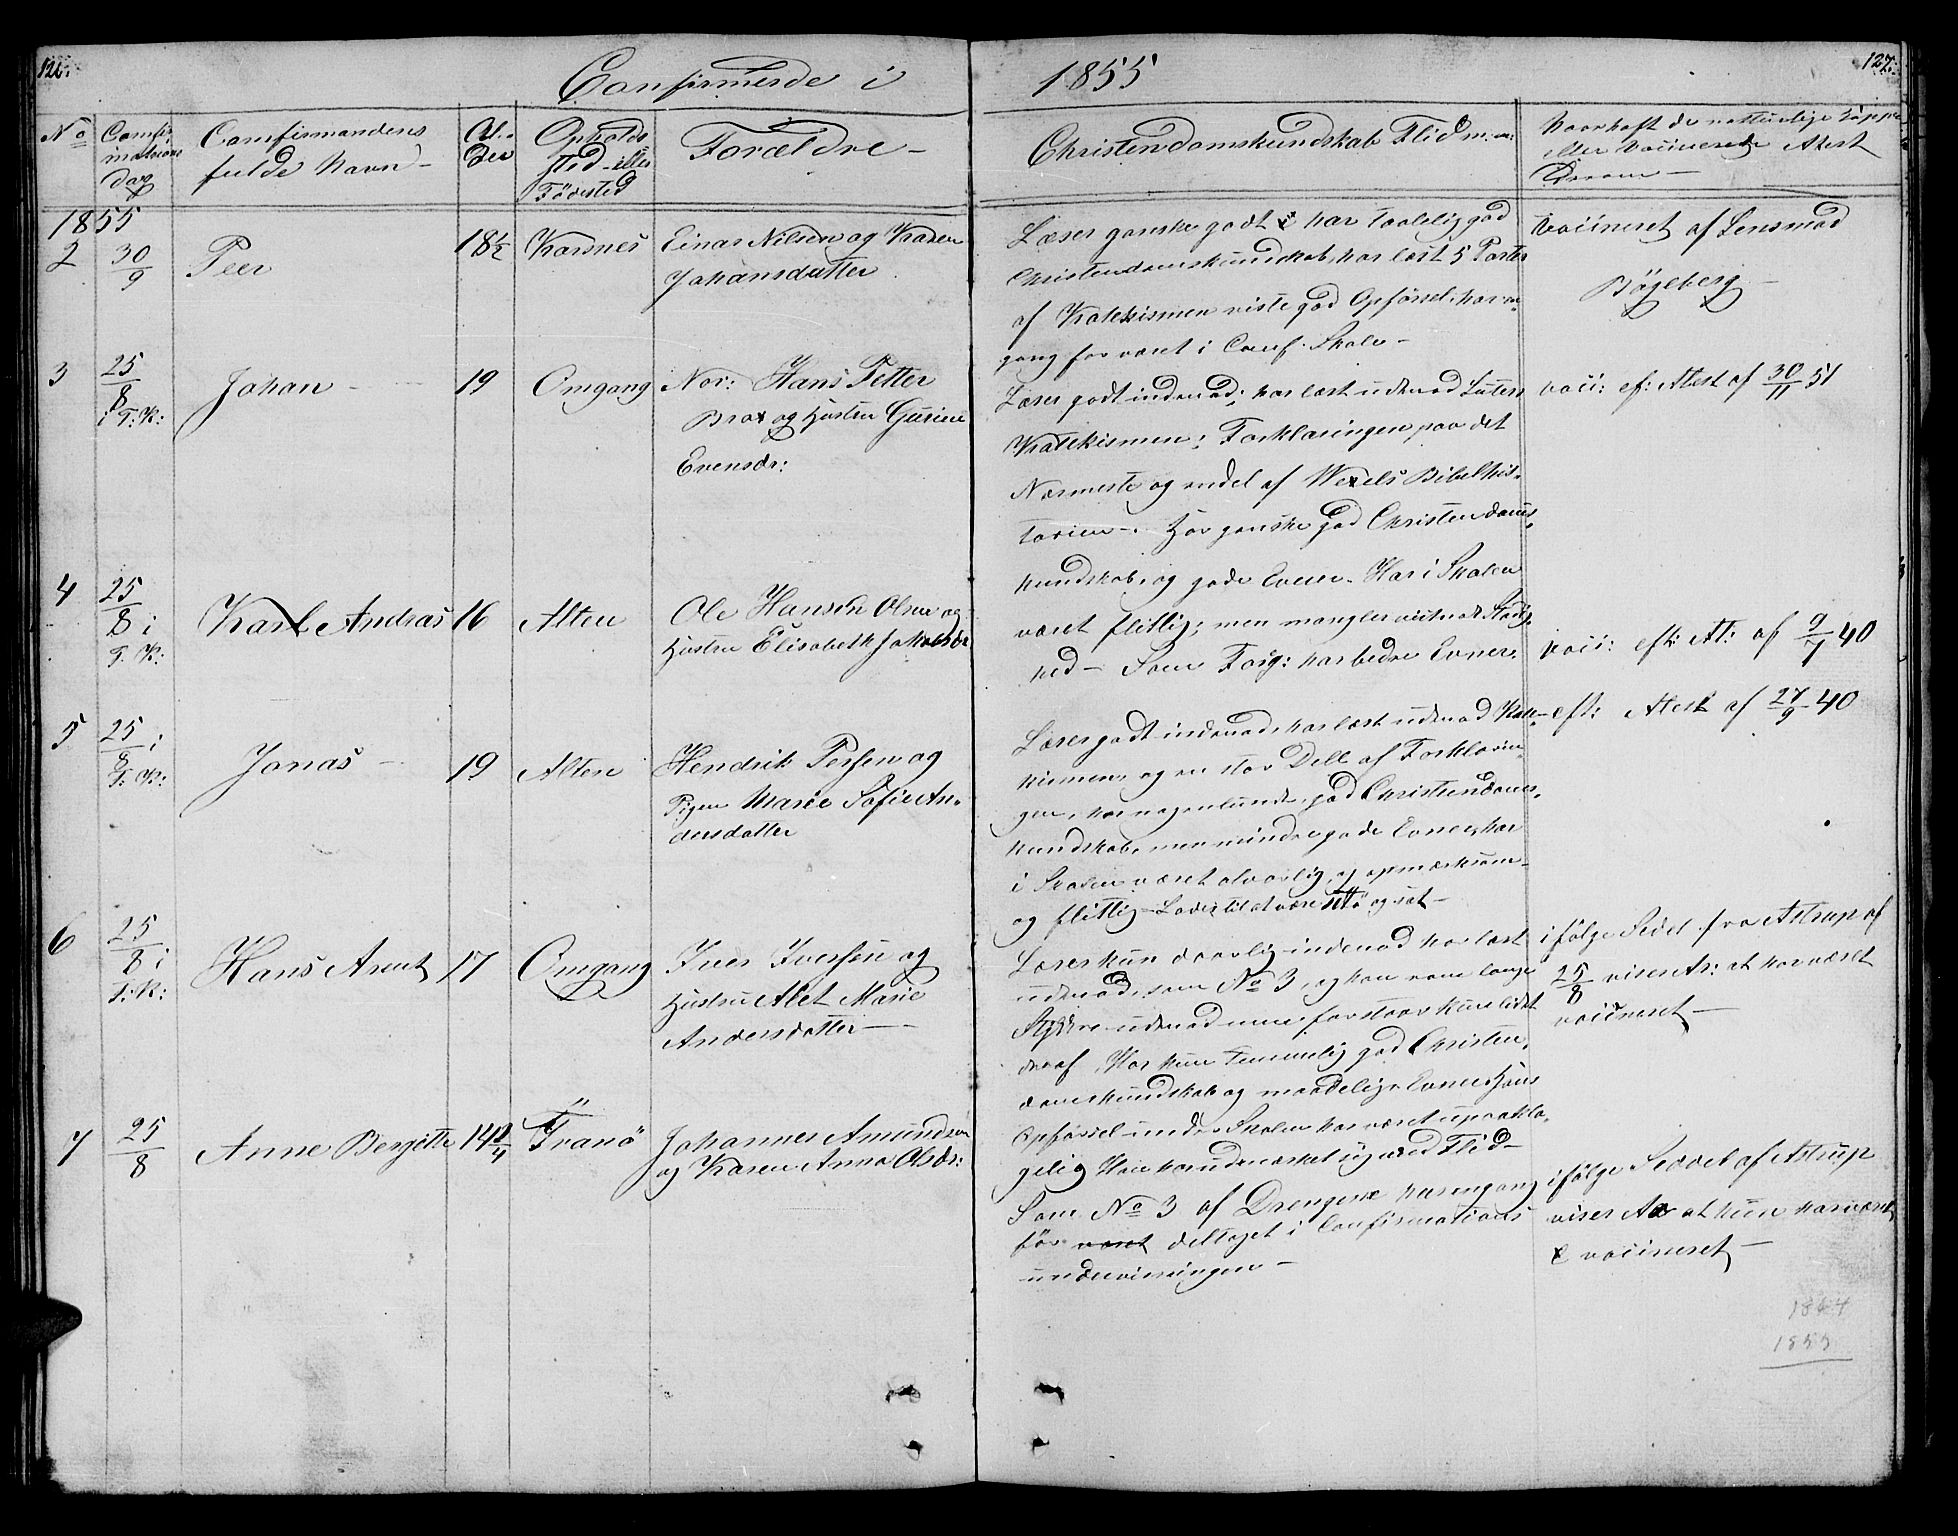 126.
Confirmerde i 1855
127.
No
Comfirmations Dag
Comfirmandens fulde Navn
Alder
Opholdssted eller Fødested
Forældre
Christendomskundskab Flid m.m.
Havt de nattuelige Kopper eller Vaccinerede Atest Derom
1855
2
30/9
Peer
18½
Karsnes
Einar Nilsen og Karen
Johansdatter
Læser ganske godt har taalelig god
Christendomskundskab, har læst 5 Parter
af Katekismen viste god Opførsel, har en
gang før været i Conf. Skole
Vaccineret af Lensmad
Bøgeberg
3
25/8 i T: K:
Johan
19
Omgang
Nor: Hans Petter
Brox og Hustru Gurine
Evensdr:
Læser godt indenad; har læst udenad Luters
Katekismen; Forklaringen paa det
Nærmeste og endel af Wexels Bibelhis-
torien. Har ganske god Christendoms-
kundskab, og gode Evner. Har i Skolen
været flittig; men mangler
vaci: ef: Atest af 30/11 51
4
25/8 i T: K:
Karl Andras
16
Alten
Ole Hansen Olsen og
Hustru Elisabeth
hed - Som Forg: har bedre Evner
vaci: eft: At: af 9/7 40
5
25/8 i T: K:
Jonas
19
Alten
Hendrik Persen og
Pigen Marie Sofie An-
dersdatter
Læser godt indenad har læst udenad Kate-
kismen, og en stor Dell af Forklarin-
gen, har nogenlunde god Christendoms-
kundskab, men mindre gode Evner, har
i Skolen været alvorlig, og opmærksom
og flittig - Lover til at være og sat
eft: Atest af 27/9 40
6
25/8 i T: K:
Hans Arent
17
Omgang
Iver Iversen og
Hustru Alet Marie
Andersdatter
Læser kun daarlig indenad har læst
udenad, som No 3, og kan ram lange
Stykker udenad men forstaar kun lidet
deraf. Har kun temmelig god Christen-
domskundskab og maadelige Evner Hans
Opførsel under Skolen har været upaakla-
gelig Han har udmærket sig ved Flid
ifølge Sedel fra Astrup af
25/8 viser At: at har været
vacineret
7
25/8
Anne Bergitte
14¾
Tranö
Johannes Amundsen
og Karen Anna Olsdr:
Som No 3 af Drengene har engang
før været deltaget i Confirmations
undervisningen
ifølge Seddel af Astrup
viser At at hun har været
vacineret
1855